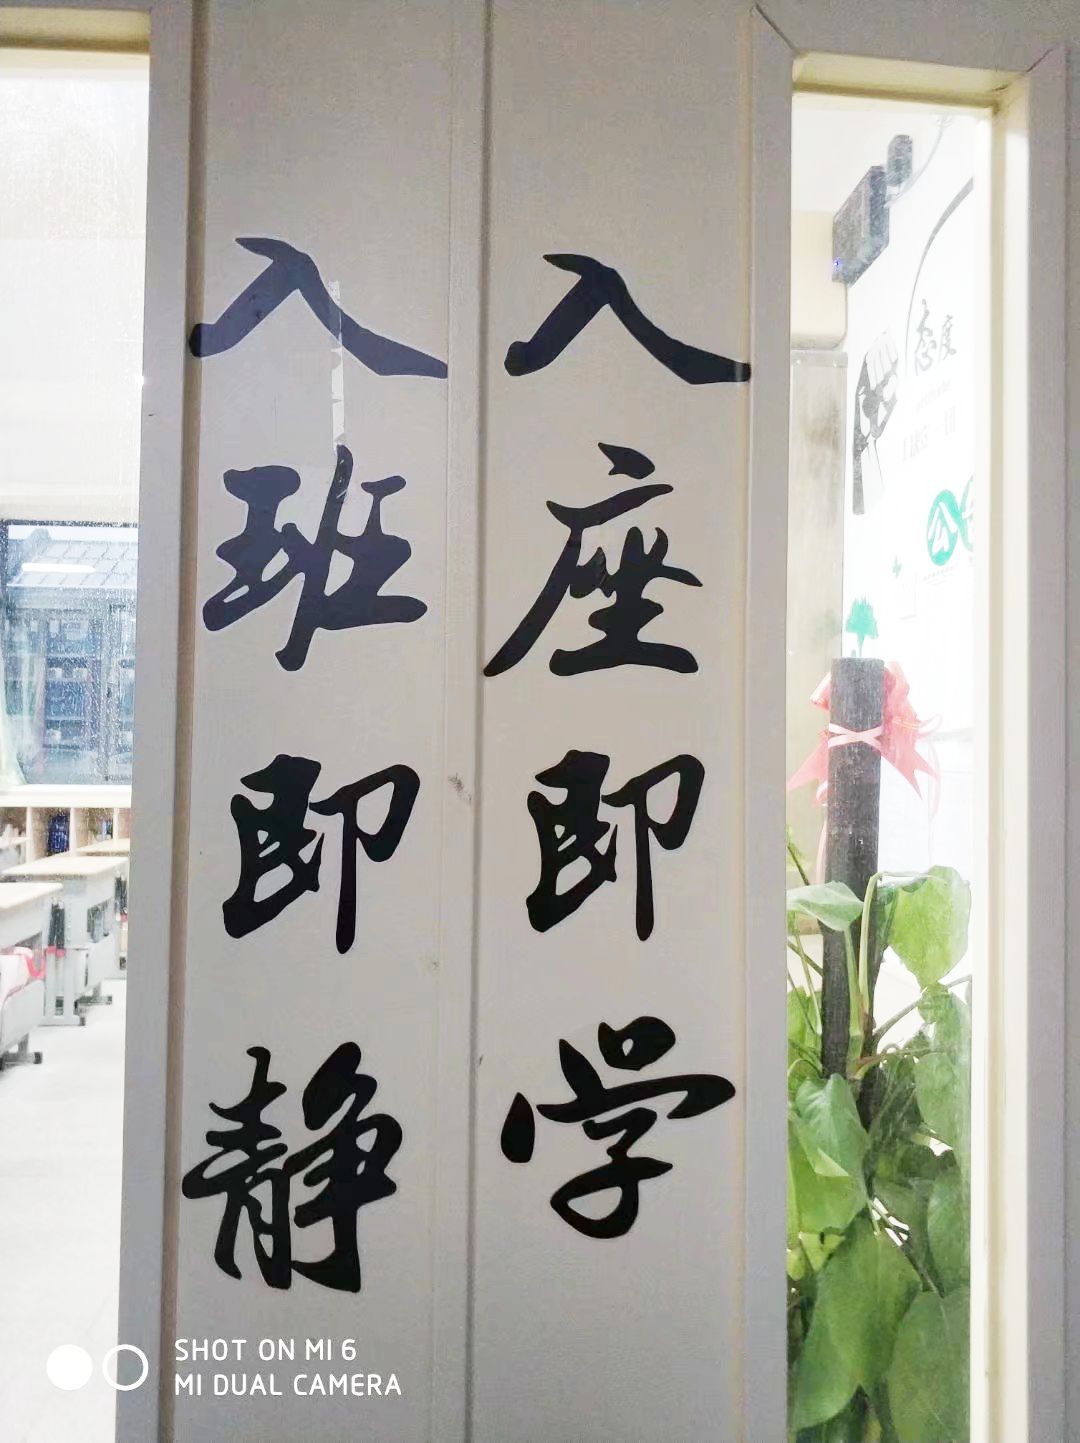 入班即静
入座即学
态度
SHOT ON MI 6
MI DUAL CAMERA